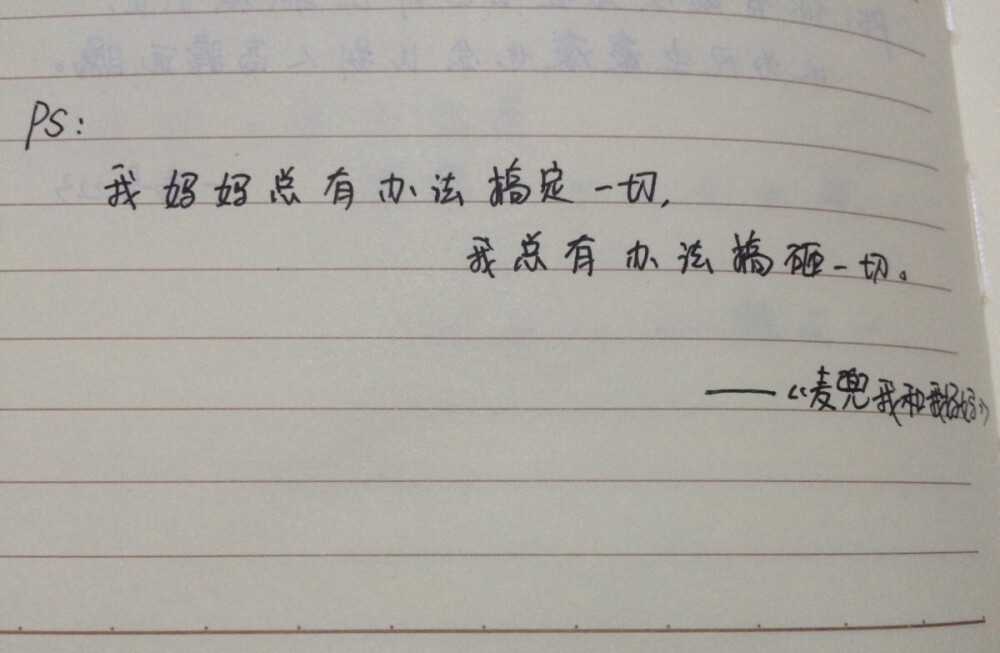 PS:
我妈妈总有办法搞定一切,
我总有办法搞砸一切。
——《麦兜我和我妈妈》